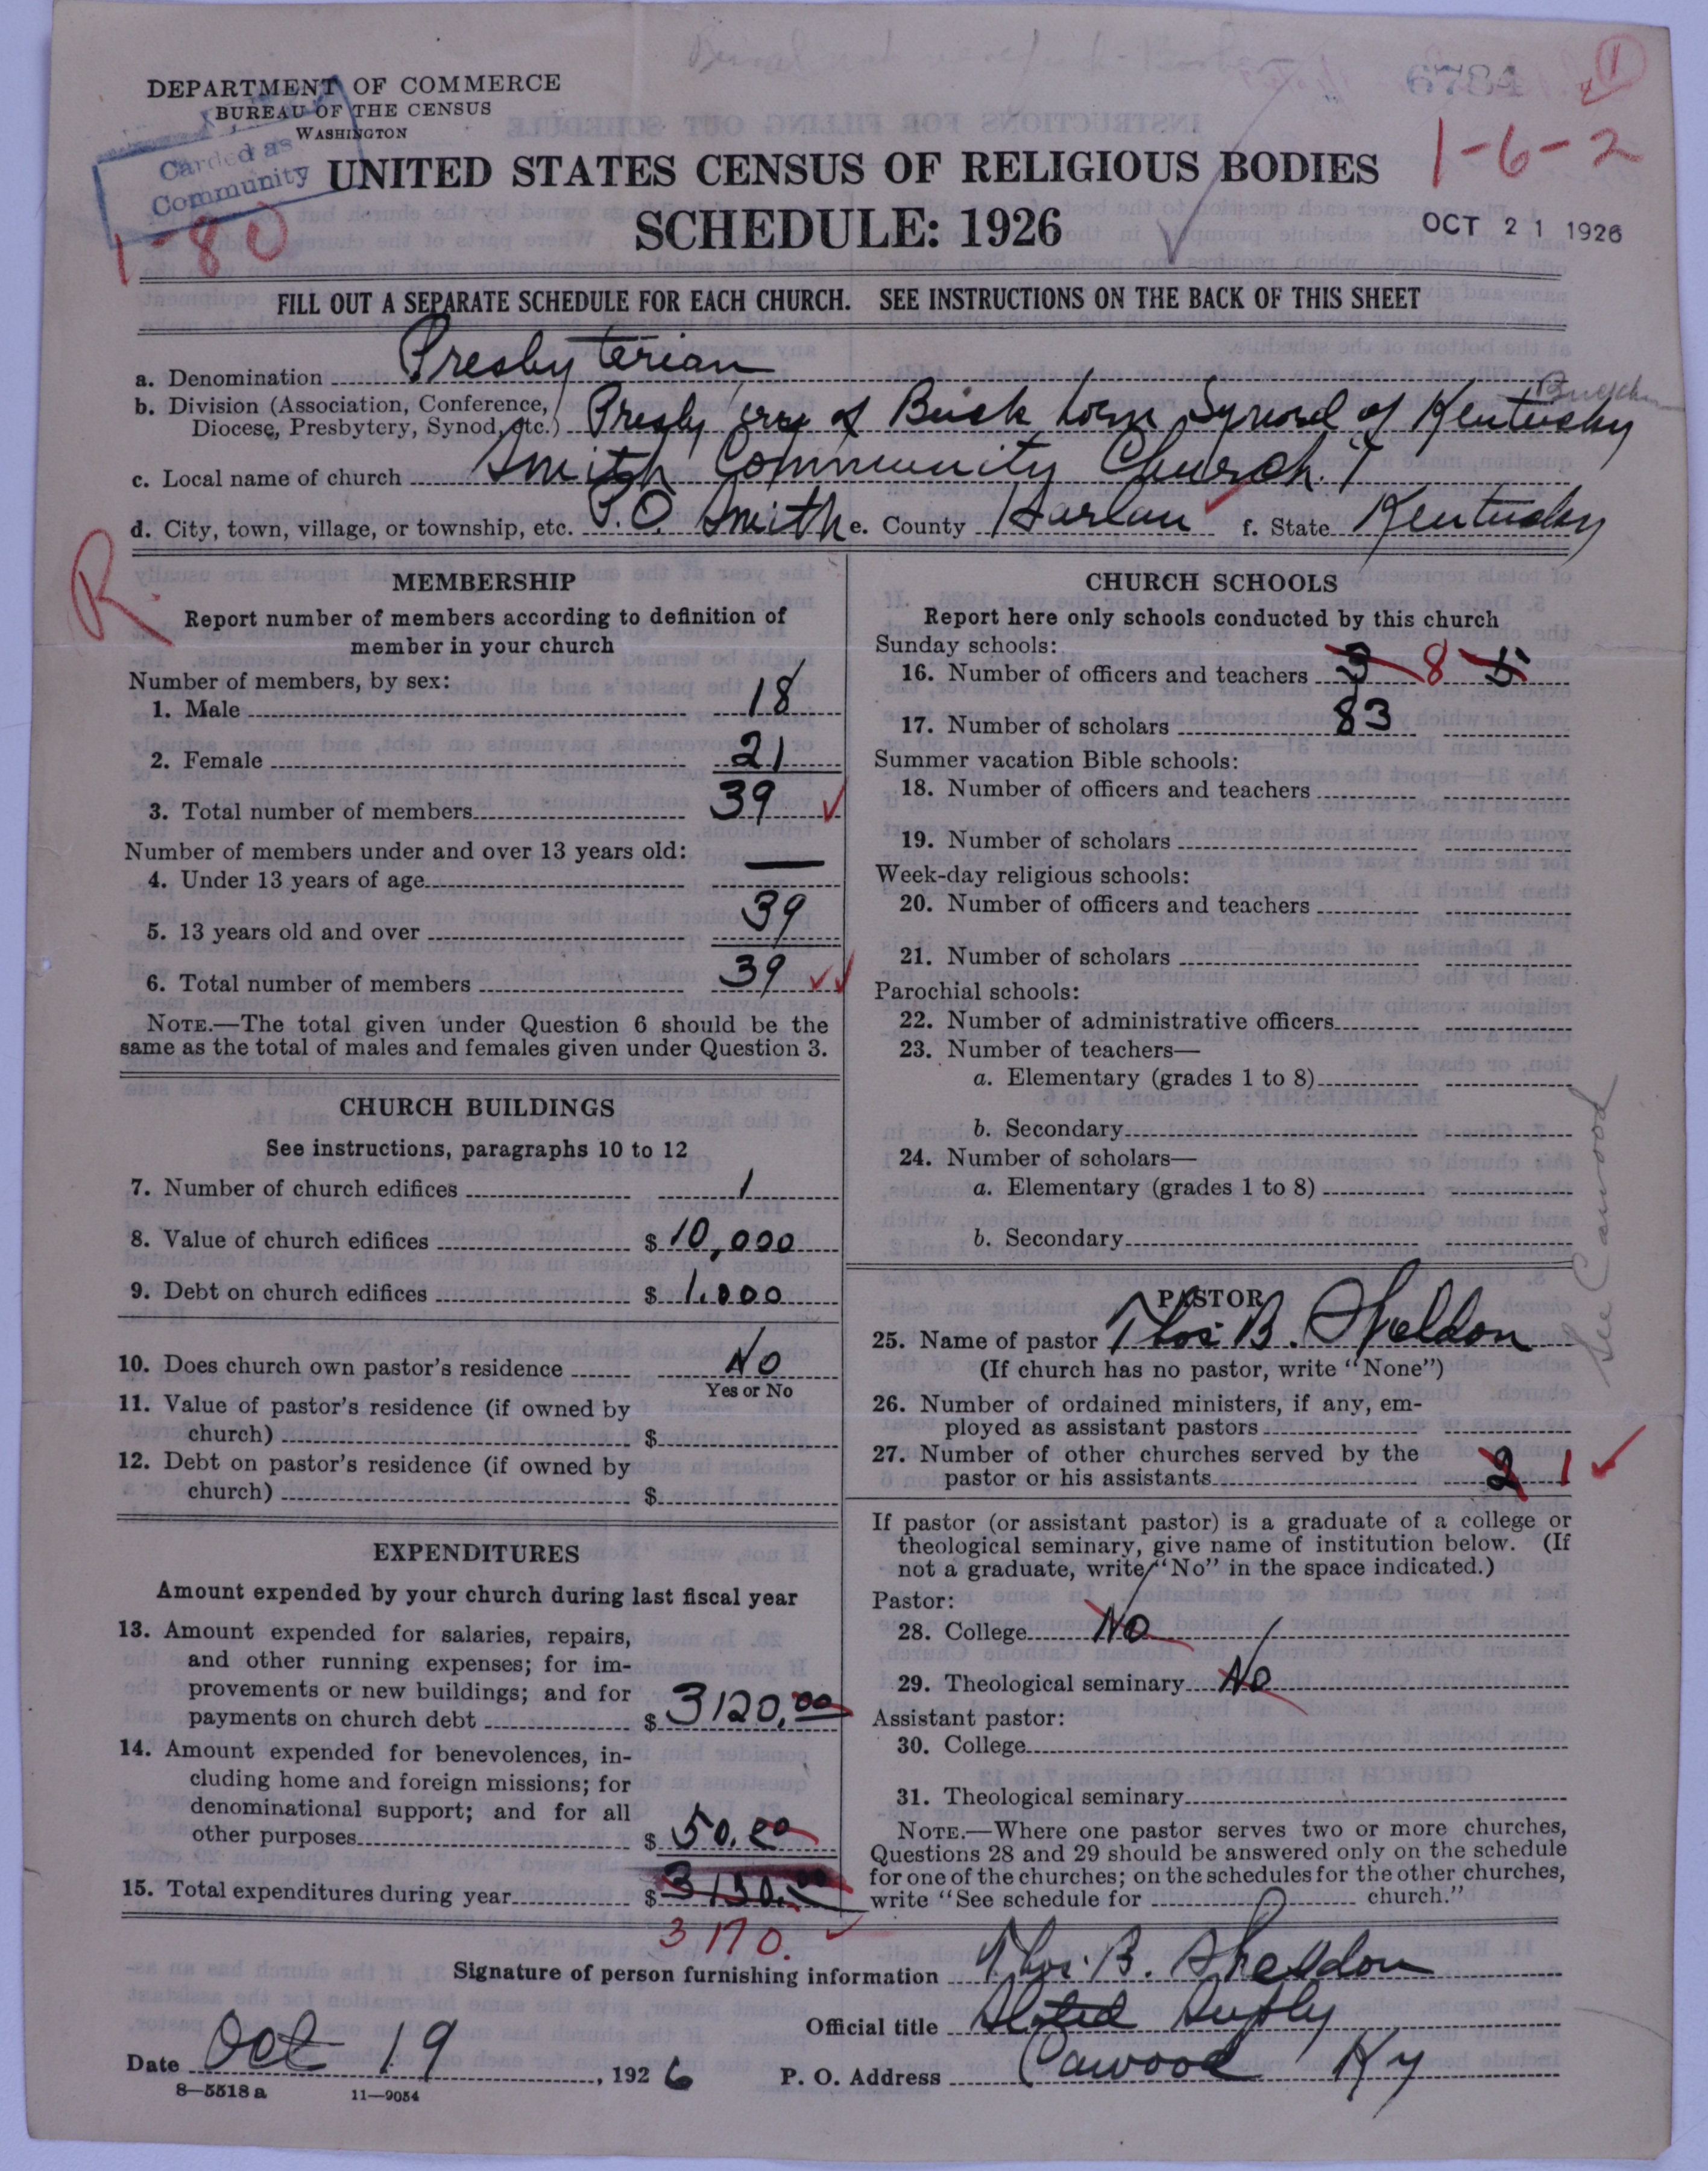 6784
1
DEPARTMENT OF COMMERCE
BUREAU OF THE CENSUS
WASHINGTON
Carded as
Community
1-80
1-6-2
UNITED STATES CENSUS OF RELIGIOUS BODIES
SCHEDULE: 1926
OCT 21 1926
FILL OUT A SEPARATE SCHEDULE FOR EACH CHURCH. SEE INSTRUCTIONS ON THE BACK OF THIS SHEET
a. Denomination Presbyterian
b. Division (Association, Conference,
Diocese, Presbytery, Synod, etc.) Presbytery of Buck horn Synod of Kentucky
c. Local name of church Smith Community Church.
d. City, town, village, or township, etc. P.O. Smith e. County Harlan f. State Kentucky
R
MEMBERSHIP
Report number of members according to definition of
member in your church
Number of members, by sex:
1. Male 18
2. Female 21
3. Total number of members 39
Number of members under and over 13 years old:
4. Under 13 years of age —
5. 13 years old and over 39
6. Total number of members 39
NOTE.—The total given under Question 6 should be the
same as the total of males and females given under Question 3.
CHURCH BUILDINGS
See instructions, paragraphs 10 to 12
7. Number of church edifices 1
8. Value of church edifices $ 10,000
9. Debt on church edifices $ 1.000
10. Does church own pastor's residence No
Yes or No
11. Value of pastor's residence (if owned by
church) $
12. Debt on pastor's residence (if owned by
church) $
EXPENDITURES
Amount expended by your church during last fiscal year
13. Amount expended for salaries, repairs,
and other running expenses; for im-
provements or new buildings; and for
payments on church debt $ 3120.00
14. Amount expended for benevolences, in-
cluding home and foreign missions; for
denominational support; and for all
other purposes $ 50.00
15. Total expenditures during year $ 3130.00
3170.
CHURCH SCHOOLS
Report here only schools conducted by this church
Sunday schools:
16. Number of officers and teachers 3 8 5
17. Number of scholars 83
Summer vacation Bible schools:
18. Number of officers and teachers
19. Number of scholars
Week-day religious schools:
20. Number of officers and teachers
21. Number of scholars
Parochial schools:
22. Number of administrative officers
23. Number of teachers—
a. Elementary (grades 1 to 8)
b. Secondary
24. Number of scholars—
a. Elementary (grades 1 to 8)
b. Secondary
See Cawood
PASTOR
25. Name of pastor Thos. B. Sheldon
(If church has no pastor, write "None")
26. Number of ordained ministers, if any, em-
ployed as assistant pastors
27. Number of other churches served by the
pastor or his assistants 2 1
If pastor (or assistant pastor) is a graduate of a college or
theological seminary, give name of institution below. (If
not a graduate, write "No" in the space indicated.)
Pastor:
28. College No
29. Theological seminary No
Assistant pastor:
30. College
31. Theological seminary
NOTE.—Where one pastor serves two or more churches,
Questions 28 and 29 should be answered only on the schedule
for one of the churches; on the schedules for the other churches,
write "See schedule for church."
Signature of person furnishing information Thos. B. Sheldon
Official title Stated Supply
Date Oct 19, 1926 P. O. Address Cawood Ky
8—5518a 11—9054